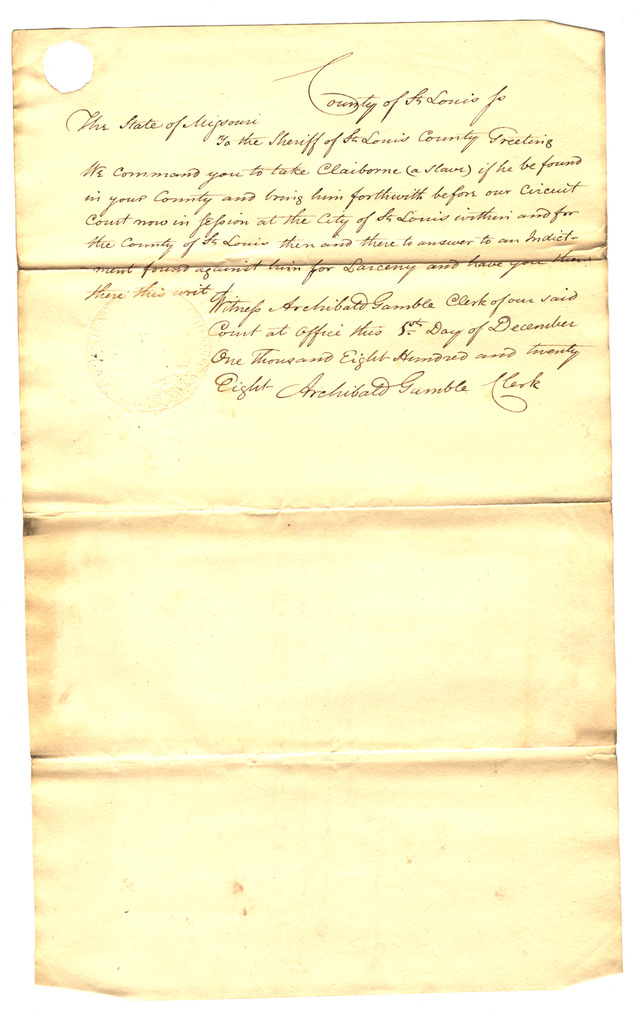 County of St Louis ss
The State of Missouri
To the Sheriff of St Louis County Greeting
We Command you to take Claiborne (a slave) if he be found
in your County and bring him forthwith before our Circuit
Court now in session at the City of St Louis within and for
the County of St Louis then and there to answer to an Indict-
ment found against him for Larceny and have you then
there this writ
Witness Archibald Gamble Clerk of our said
Court at office this 5th Day of December
One thousand Eight Hundred and twenty
Eight Archibald Gamble Clerk